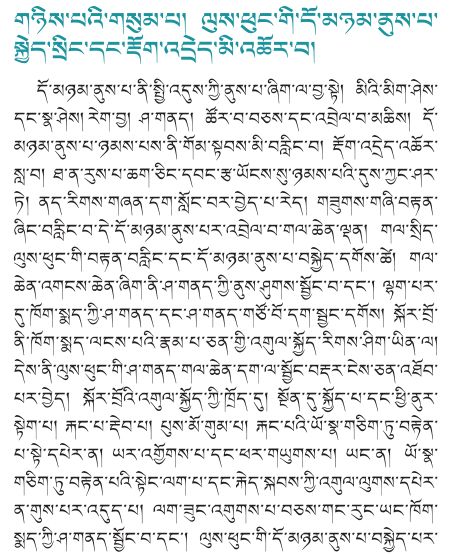 གཉིས་པའི་གསུམ་པ། ལུས་ཕུང་གི་དོ་མཉམ་ནུས་པ་
སྐྱེད་སྲིང་དང་རྡོག་འདྲེད་མི་འཆོར་བ།
དོ་མཉམ་ནུས་པ་ནི་སྤྱི་འདུས་ཀྱི་ནུས་པ་ཞིག་ལ་བྱ་སྟེ། མིའི་མིག་ཤེས་
དང་སྣ་ཤེས། རེག་བྱ། ཤ་གནད། ཚོར་བ་བཅས་དང་འབྲེལ་བ་མཆིས། དོ་
མཉམ་ནུས་པ་ཉམས་པས་ནི་གོམ་སྟབས་མི་བརླིང་བ། རྡོག་འདྲེད་འཆོར་
སླ་བ། ཐ་ན་རུས་པ་ཆག་ཅིང་དབང་རྩ་ཡོངས་སུ་ཉམས་པའི་དུས་ཀྱང་ཤར་
ཏེ། ནད་རིགས་གཞན་དག་སློང་བར་བྱེད་པ་རེད། གཟུགས་གཞི་བརྟན་
ཞིང་བརླིང་བ་དེ་དོ་མཉམ་ནུས་པར་འབྲེལ་བ་གལ་ཆེན་ལྡན། གལ་སྲིད་
ལུས་ཕུང་གི་བརྟན་བརླིང་དང་དོ་མཉམ་ནུས་པ་བསྐྱེད་དགོས་ཚེ། གལ་
ཆེན་འགངས་ཆེན་ཞིག་ནི་ཤ་གནད་ཀྱི་ནུས་ཤུགས་སྦྱོང་བ་དང་། ལྷག་པར་
དུ་ཁོག་སྨད་ཀྱི་ཤ་གནད་དང་ཤ་གནད་གཙོ་བོ་དག་སྦྱང་དགོས། སྐོར་བྲོ་
ནི་ཁོག་སྨད་ལངས་པའི་རྣམ་པ་ཅན་གྱི་འགུལ་སྐྱོད་རིགས་ཤིག་ཡིན་ལ།
དེས་ནི་ལུས་ཕུང་གི་ཤ་གནད་གལ་ཆེན་དག་ལ་སྦྱོང་བརྡར་ངེས་ཅན་འཐོབ་
པར་བྱེད། སྐོར་བྲོའི་འགུལ་སྐྱོད་ཀྱི་ཁྲོད་དུ། སྔོན་དུ་སྐྱོད་པ་དང་ཕྱི་ནུར་
སྟེག་པ། རྐང་པ་རྡེབ་པ། པུས་མོ་གུམ་པ། རྐང་པའི་ཡོ་སྣ་གཅིག་ཏུ་བརྟེན་
པ་སྟེ་དཔེར་ན། ཡར་འགྱོགས་པ་དང་ཕར་གཡུགས་པ། ཡང་ན། ཡོ་སྣ་
གཅིག་ཏུ་བརྟེན་པའི་སྟེང་ལག་པ་དང་རྐེད་སྐབས་ཀྱི་འགུལ་ལུགས་དཔེར་
ན་གུས་པར་འདུད་པ། ལག་ཟུང་འགུགས་པ་བཅས་གང་རུང་ཡང་ཁོག་
སྨད་ཀྱི་ཤ་གནད་སྦྱོང་བ་དང་། ལུས་ཕུང་གི་དོ་མཉམ་ནུས་པ་བསྐྱེད་པར་